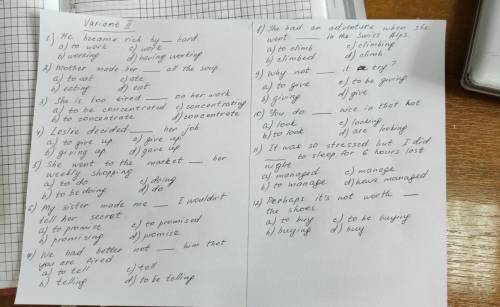 Variant II
1) He became rich by __ hard.
a) to work c) work
b) working d) having working
2) Mother made her __ all the soup
a) to eat c) ate
b) eating d) eat
3) She is too tired __ on her work
a) to be concentrated c) concentrating
b) to concentrate d) concentrate
4) Leslie decided __ her job
a) to give up c) give up
b) giving up d) gave up
5) She went to the market __ her
weekly shopping
a) to do c) doing
b) to be doing d) do
6) My sister made me __ I wouldn't
tell her secret.
a) to promise c) to promised
b) promising d) promise
7) We had better not __ him that
you are fired.
a) to tell c) tell
b) telling d) to be telling
8) She had an adventure when she
went __ in the Swiss Alps.
a) to climb c) climbing
b) climbed d) climb
9) Why not __ it a try?
a) to give c) to be giving
b) giving d) give
10) You do __ nice in that hat
a) look c) looking
b) to look d) are looking
11) It was so stressed but I did
__ to sleep for 6 hours last
night
a) managed c) manage
b) to manage d) have managed
12) Perhaps it's not worth __
the shoes.
a) to buy c) to be buying
b) buying d) buy